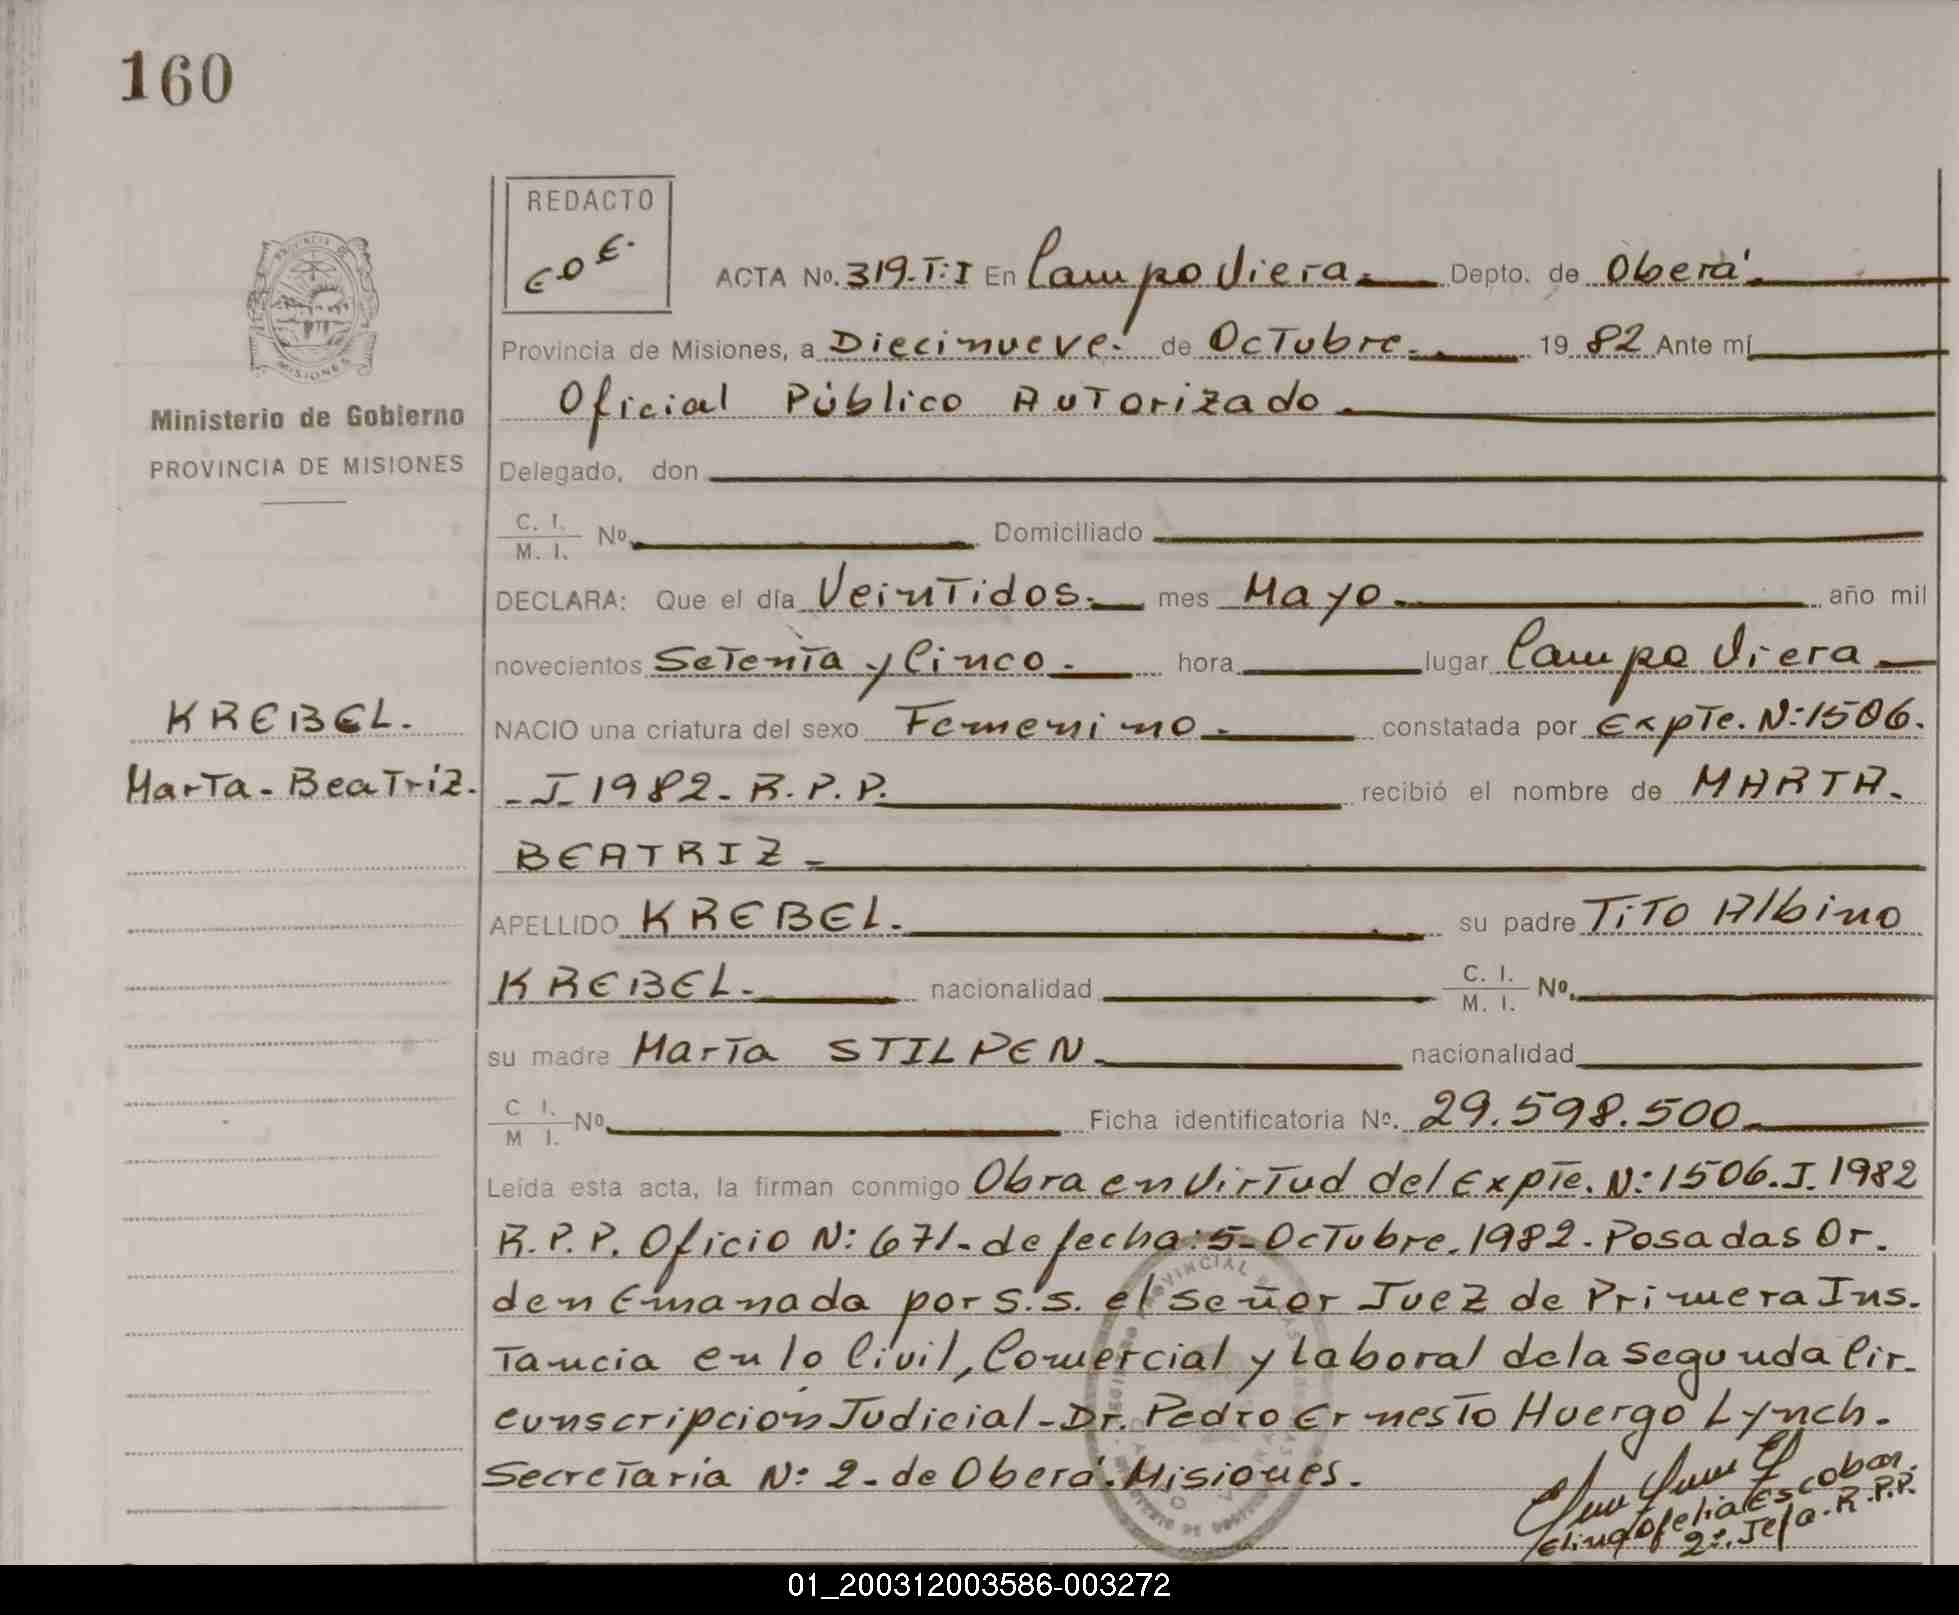 160
REDACTO
E O E.
ACTA No. 319-T:I En Campo Viera. Depto. de Oberá.
Provincia de Misiones, a Diecinueve. de Octubre. 1982 Ante mí
Oficial Público Autorizado.
Ministerio de Gobierno
PROVINCIA DE MISIONES
Delegado, don
C. I.
M. I. No. Domiciliado
DECLARA: Que el día Veintidos. mes Mayo. año mil
novecientos Setenta y Cinco. hora lugar Campo Viera
KREBEL.
NACIO una criatura del sexo Femenino. constatada por Expte. N:1506.
Marta-Beatriz.
-I-1982-R.P.P. recibió el nombre de MARTA.
BEATRIZ.
APELLIDO KREBEL. su padre Tito Albino
KREBEL. nacionalidad C. I. M. I. No.
su madre Marta STILPEN. nacionalidad
C I. M I. No. Ficha identificatoria No. 29.598.500
Leída esta acta, la firman conmigo Obra en Virtud del Expte. N:1506.I.1982
R.P.P. Oficio N: 671-de fecha:5-Octubre.1982-Posadas Or.
den Emanada por S.S. el señor Juez de Primera Ins.
tancia en lo Civil, Comercial y Laboral de la segunda Cir-
cunscripción Judicial-Dr. Pedro Ernesto Huergo Lynch.
Secretaría N: 2-de Oberá.Misiones.
Elina Ofelia Escobar.
2º. Jefa-R.P.P.
01_200312003586-003272